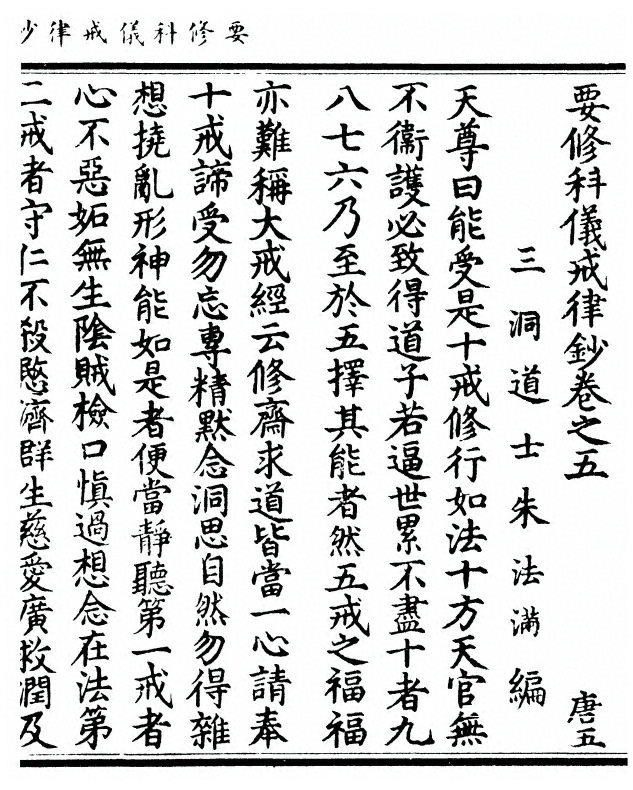 要修科儀戒律鈔
要修科儀戒律鈔卷之五
唐五
三洞道士朱法滿編
天尊曰能受是十戒修行如法十方天官無
不衞護必致得道子若逼世累不盡十者九
八七六乃至於五擇其能者然五戒之福福
亦難稱大戒經云修齋求道皆當一心請奉
十戒諦受勿忘專精默念洞思自然勿得雜
想撓亂形神能如是者便當靜聽第一戒者
心不惡妬無生陰賊檢口愼過想念在法第
二戒者守仁不殺愍濟群生慈愛廣救潤及